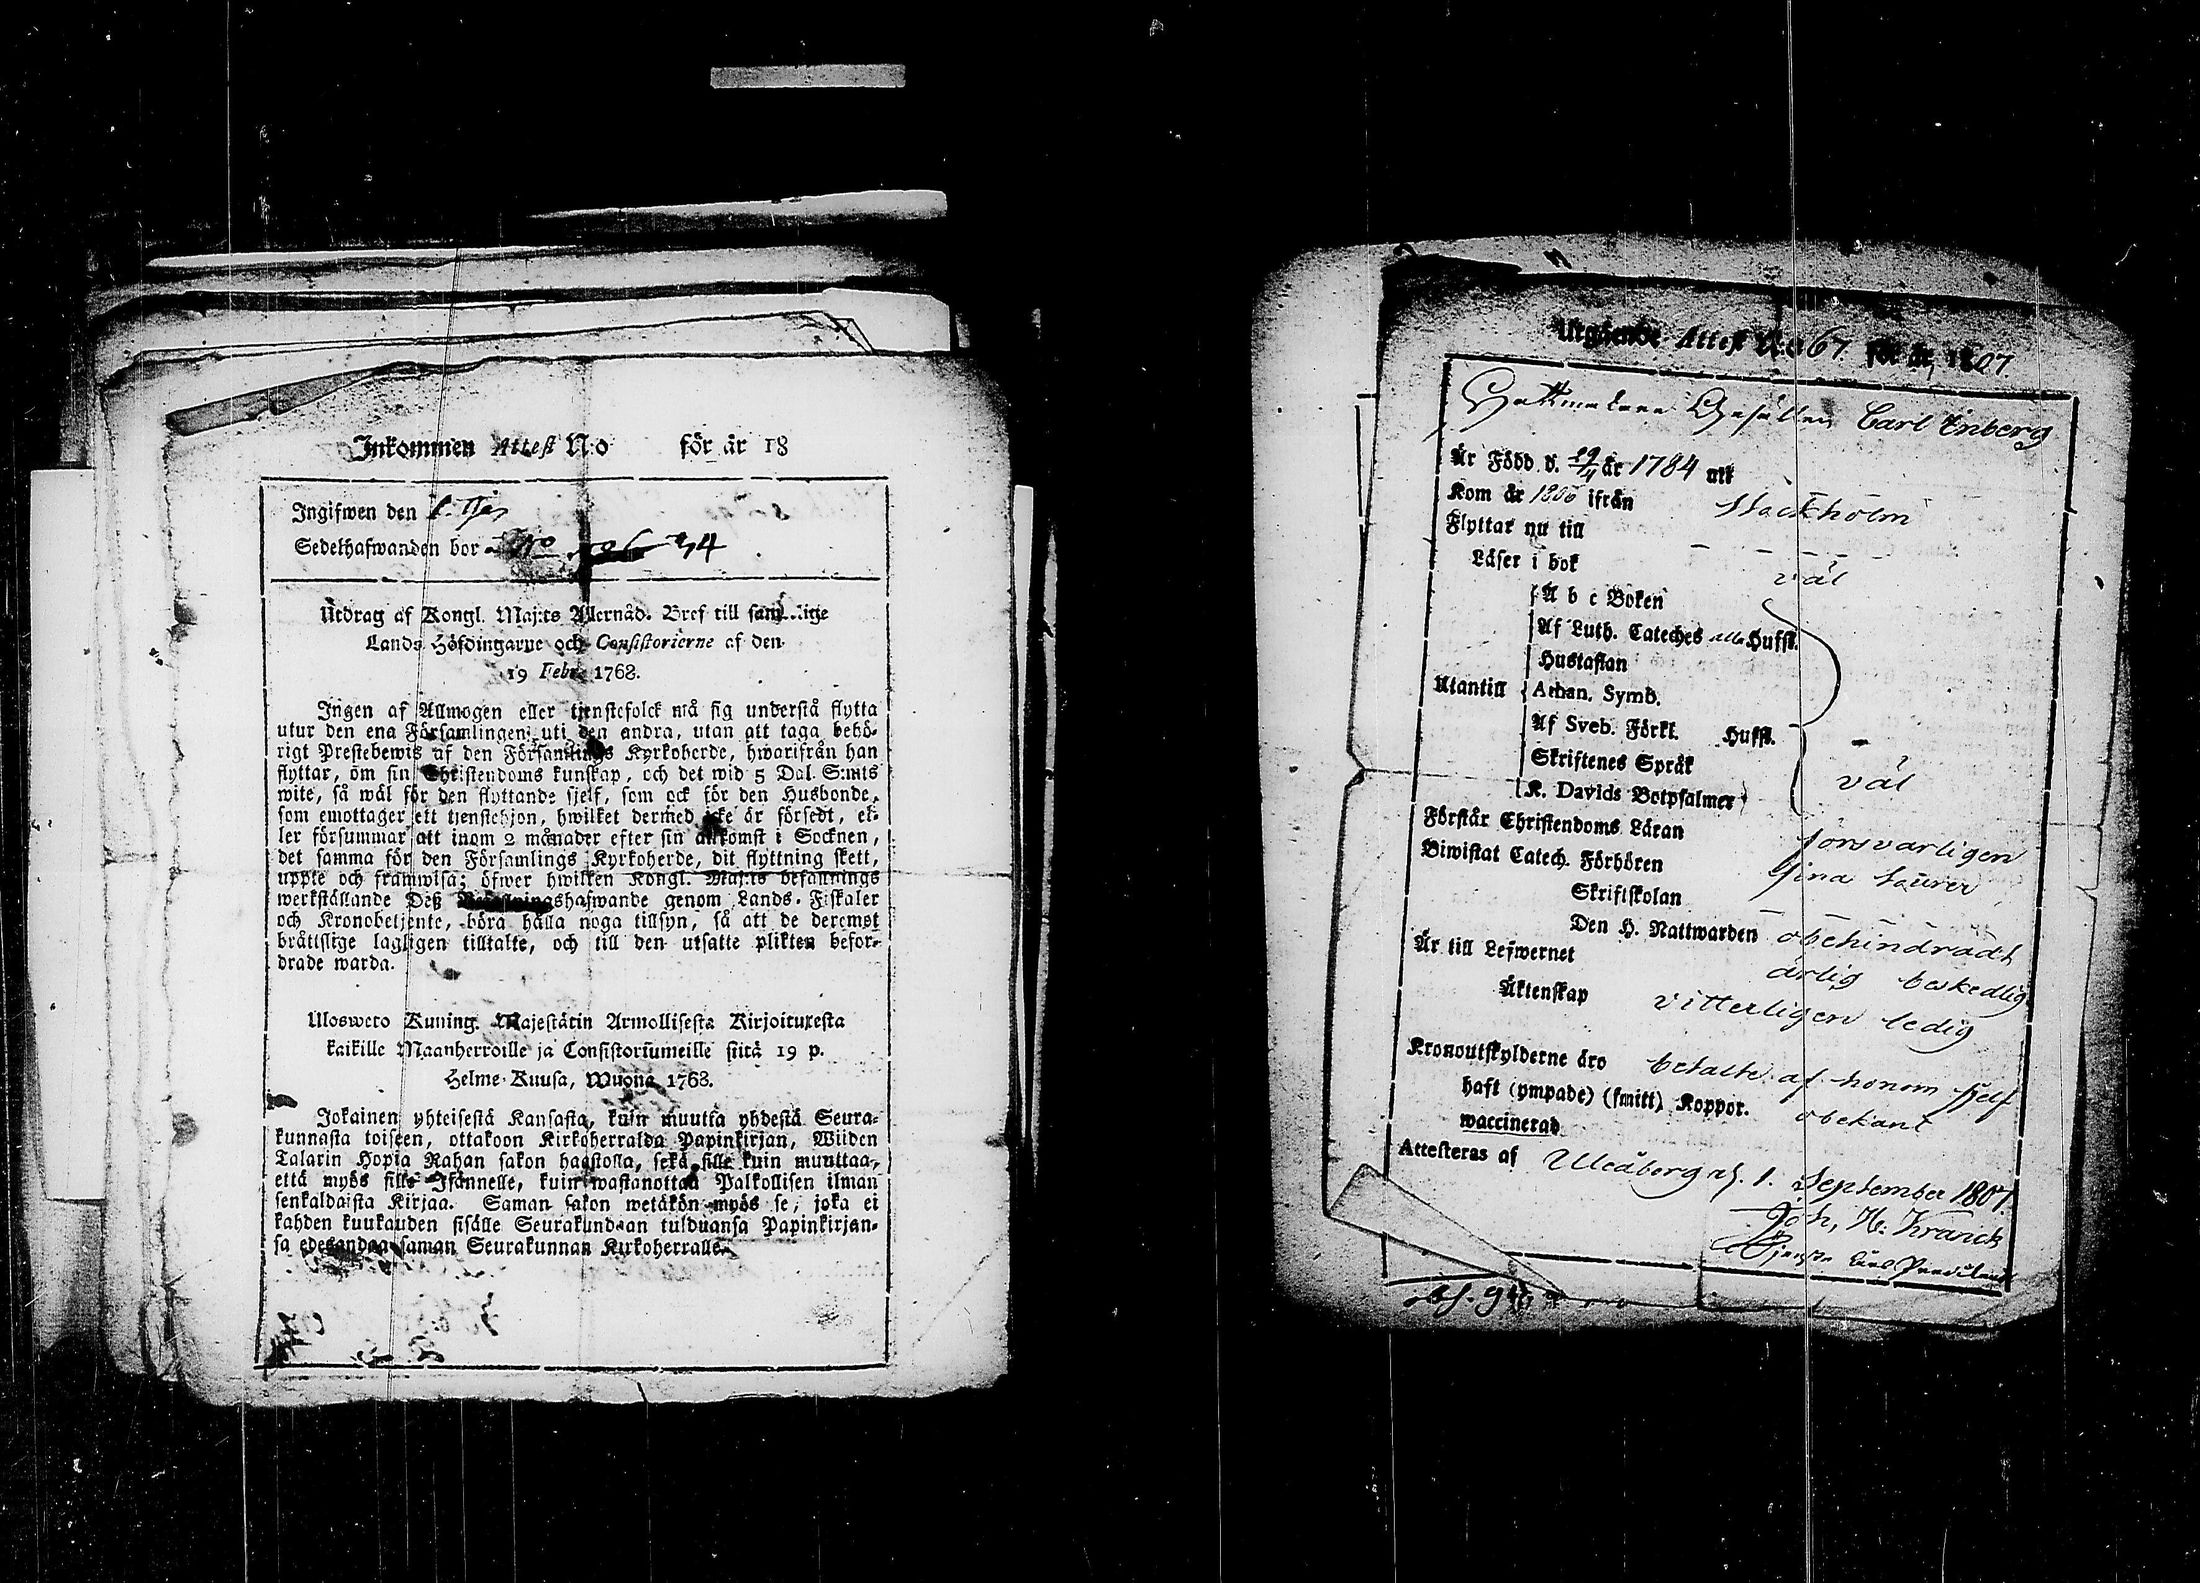 Inkommen Attest N:o för år 18
Ingifwen den
Sedelhafwanden bor 34
Utdrag af Kongl. Maj:ts Allernåd. Bref till samtlige
Lands Höfdingarne och Consistorierne af den
19 Febr. 1768.
Ingen af Allmogen eller tjenstefolck må sig understå flytta
utur den ena Församlingen uti den andra, utan att taga behö-
rigt Prestebewis af den Församlings Kyrkoherde, hwarifrån han
flyttar, om sin Christendoms kunskap, och det wid 5 Dal. S:mts
wite, så wäl för den flyttande sjelf, som ock för den Husbonde,
som emottager ett tjenstehjon, hwilket dermed icke är försedt, el-
ler försummar att inom 2 månader efter sin ankomst i Socknen,
det samma för den Församlings Kyrkoherde, dit flyttning skett,
uppte och framwisa; öfwer hwilken Kongl. Maj:ts befallnings
werkställande Deß Befallningshafwande genom Lands-Fiskaler
och Kronobetjente, böra hålla noga tillsyn, så att de deremot
bråttslige lagligen tilltalte, och till den utsatte plikten befor-
drade warda.
Uloswero Kuning. Majestätin Armollisesta Kirjoituxesta
kaikille Maanherroille ja Consistoriumeille siitä 19 p.
Helme-Kuusa, Wuona 1768.
Jokainen yhteisestä Kansasta, kuin muutta yhdestä Seura-
kunnasta toiseen, ottakoon Kirkoherralda Papinkirjan, Wiiden
Talarin Hopia Rahan sakon haastolla, sekä sille kuin muuttaa,
että myös sille Isännelle, kuin wastanottaa Palkollisen ilman
senkaldaista Kirjaa. Saman sakon wetäkön myös se, joka ei
kahden kuukauden sisälle Seurakundaan tulduansa Papinkirjan-
sa edesandaa saman Seurakunnan Kirkoherralle.
Utgående Attest N:o 67 för år 1807.
Hattmakare Gesällen Carl Enberg
Är Född d. 29/4 år 1784 uti
Kom år 1806 ifrån Stockholm
Flyttar nu till
Läser i bok väl
A b c Boken
Af Luth. Cateches alla Hufst.
Hustaflan
Utantill Athan. Symb.
Af Sveb. Förkl. Hufst.
Skriftenes Språk väl
K. Davids Botpsalmer
Förstår Christendoms Läran forsvarligen
Biwistat Catech. Förhören
Skriftskolan
Den H. Nattwarden obehindradt
Är till Lefwernet ärlig beskedlig
Äktenskap vitterligen ledig
Kronoutskylderne äro betalte af honom sjelf
haft (ympade) (smitt) Koppor. obekant
waccinerad
Attesteras af Uleåborg d. 1. September 1807.
Joh. H. Kranck